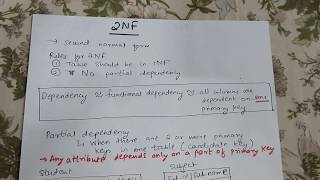 2NF
→ Second normal form
Rules for 2NF
① Table should be in 1NF
② No partial dependency
Dependency ≈ functional dependency ≈ all columns are
dependent on one
primary key
Partial dependency
↳ When there are 2 or more primary
keys in one table (candidate key)
→ Any attribute depends only on a part of primary key
Student
Subject
Sub name